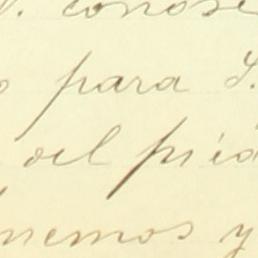 V. conose
o para S.
del pió
nemos y